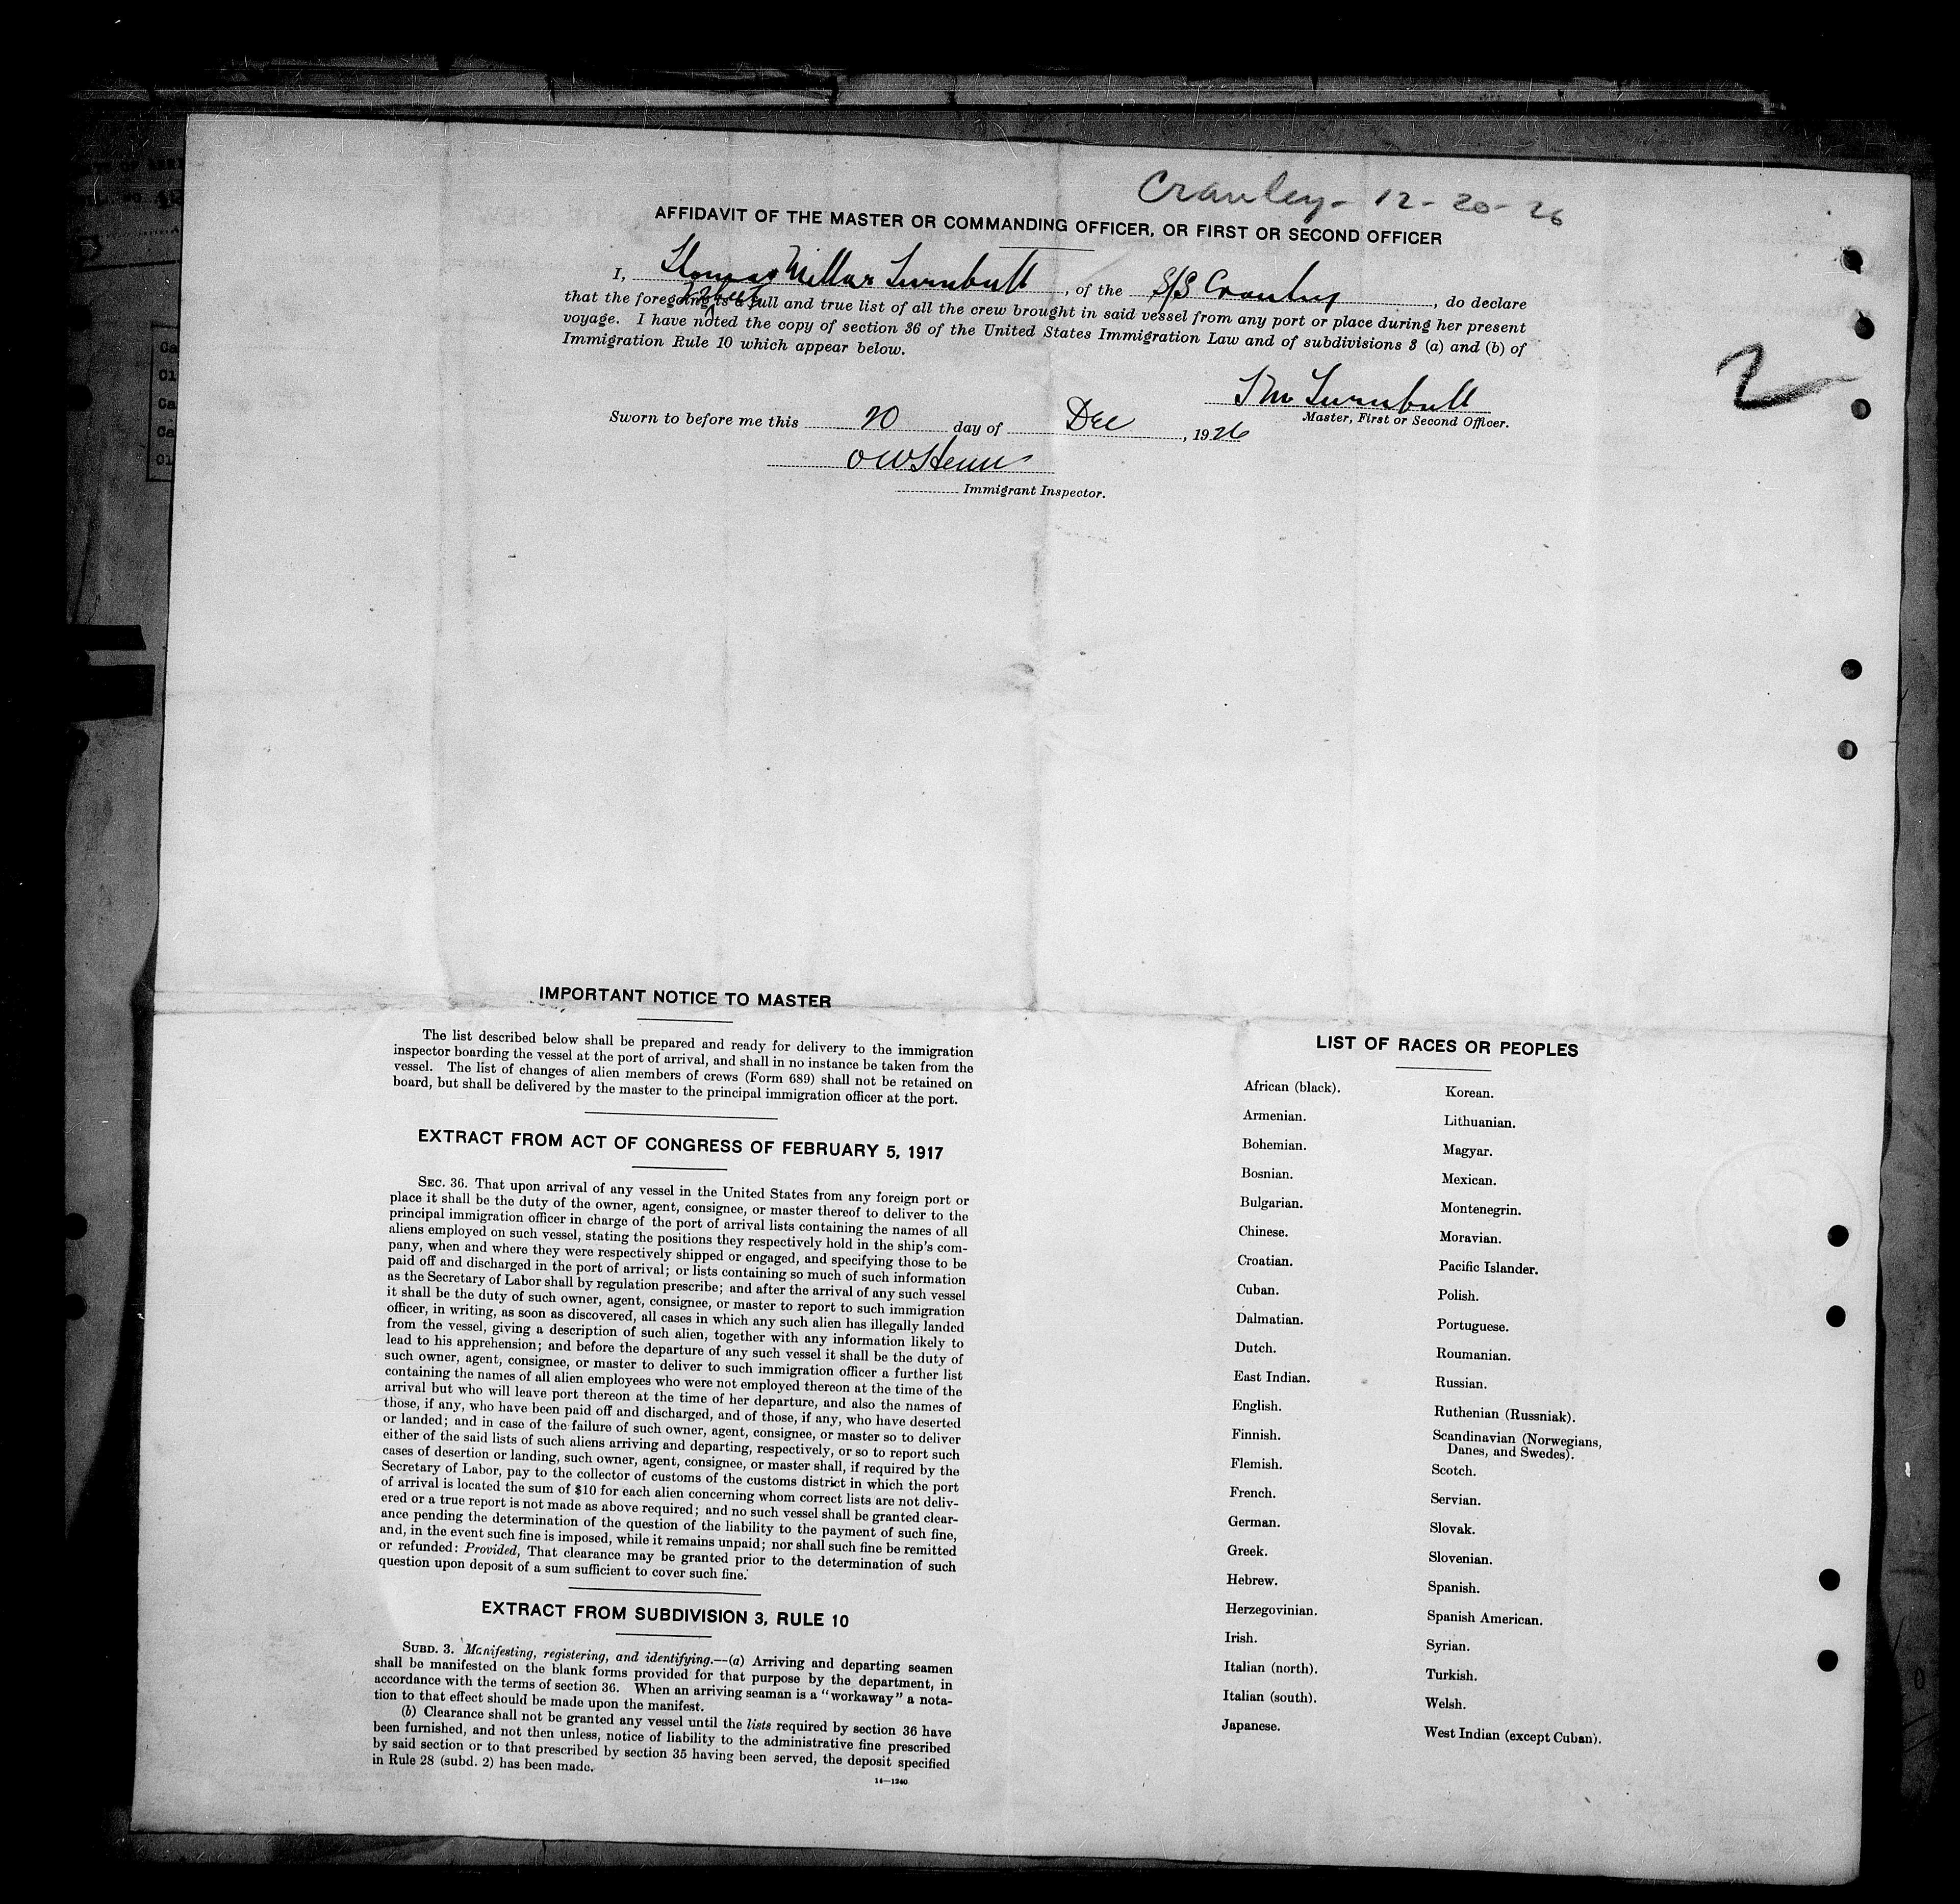 Cranley - 12-20-26
AFFIDAVIT OF THE MASTER OR COMMANDING OFFICER, OR FIRST OR SECOND OFFICER
I, Thomas Millar Turnbull, of the S/S Cranley, do declare
that the foregoing is a full and true list of all the crew brought in said vessel from any port or place during her present
voyage. I have noted the copy of section 36 of the United States Immigration Law and of subdivisions 3 (a) and (b) of
Immigration Rule 10 which appear below.
2
T M Turnbull
Master, First or Second Officer.
Sworn to before me this 20 day of Dec, 1926
Immigrant Inspector.
IMPORTANT NOTICE TO MASTER
The list described below shall be prepared and ready for delivery to the immigration
inspector boarding the vessel at the port of arrival, and shall in no instance be taken from the
vessel. The list of changes of alien members of crews (Form 689) shall not be retained on
board, but shall be delivered by the master to the principal immigration officer at the port.
EXTRACT FROM ACT OF CONGRESS OF FEBRUARY 5, 1917
SEC. 36. That upon arrival of any vessel in the United States from any foreign port or
place it shall be the duty of the owner, agent, consignee, or master thereof to deliver to the
principal immigration officer in charge of the port of arrival lists containing the names of all
aliens employed on such vessel, stating the positions they respectively hold in the ship's com-
pany, when and where they were respectively shipped or engaged, and specifying those to be
paid off and discharged in the port of arrival; or lists containing so much of such information
as the Secretary of Labor shall by regulation prescribe; and after the arrival of any such vessel
it shall be the duty of such owner, agent, consignee, or master to report to such immigration
officer, in writing, as soon as discovered, all cases in which any such alien has illegally landed
from the vessel, giving a description of such alien, together with any information likely to
lead to his apprehension; and before the departure of any such vessel it shall be the duty of
such owner, agent, consignee, or master to deliver to such immigration officer a further list
containing the names of all alien employees who were not employed thereon at the time of the
arrival but who will leave port thereon at the time of her departure, and also the names of
those, if any, who have been paid off and discharged, and of those, if any, who have deserted
or landed; and in case of the failure of such owner, agent, consignee, or master so to deliver
either of the said lists of such aliens arriving and departing, respectively, or so to report such
cases of desertion or landing, such owner, agent, consignee, or master shall, if required by the
Secretary of Labor, pay to the collector of customs of the customs district in which the port
of arrival is located the sum of $10 for each alien concerning whom correct lists are not deliv-
ered or a true report is not made as above required; and no such vessel shall be granted clear-
ance pending the determination of the question of the liability to the payment of such fine,
and, in the event such fine is imposed, while it remains unpaid; nor shall such fine be remitted
or refunded: Provided, That clearance may be granted prior to the determination of such
question upon deposit of a sum sufficient to cover such fine.
EXTRACT FROM SUBDIVISION 3, RULE 10
SUBD. 3. Manifesting, registering, and identifying.--(a) Arriving and departing seamen
shall be manifested on the blank forms provided for that purpose by the department, in
accordance with the terms of section 36. When an arriving seaman is a "workaway" a nota-
tion to that effect should be made upon the manifest.
(b) Clearance shall not be granted any vessel until the lists required by section 36 have
been furnished, and not then unless, notice of liability to the administrative fine prescribed
by said section or to that prescribed by section 35 having been served, the deposit specified
in Rule 28 (subd. 2) has been made.
14—1240
LIST OF RACES OR PEOPLES
African (black).
Armenian.
Bohemian.
Bosnian.
Bulgarian.
Chinese.
Croatian.
Cuban.
Dalmatian.
Dutch.
East Indian.
English.
Finnish.
Flemish.
French.
German.
Greek.
Hebrew.
Herzegovinian.
Irish.
Italian (north).
Italian (south).
Japanese.
Korean.
Lithuanian.
Magyar.
Mexican.
Montenegrin.
Moravian.
Pacific Islander.
Polish.
Portuguese.
Roumanian.
Russian.
Ruthenian (Russniak).
Scandinavian (Norwegians,
Danes, and Swedes).
Scotch.
Servian.
Slovak.
Slovenian.
Spanish.
Spanish American.
Syrian.
Turkish.
Welsh.
West Indian (except Cuban).